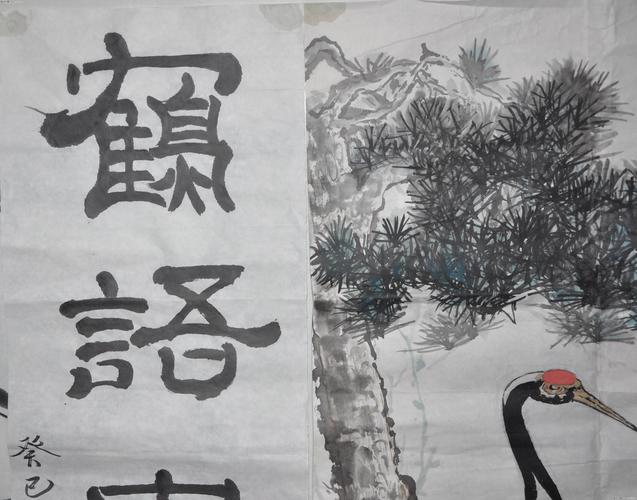 鶴語
癸巳